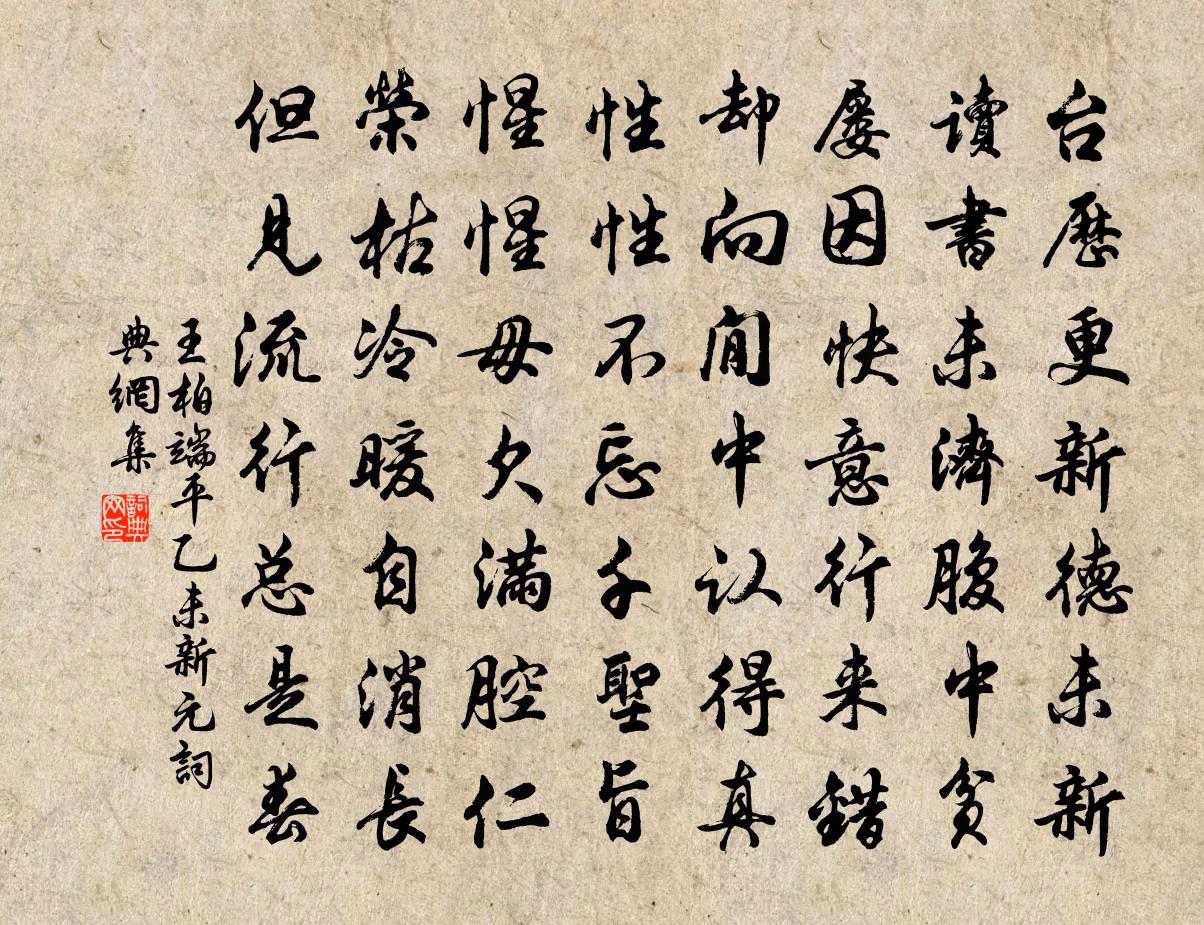 台歷更新德未新
讀書未濟腹中貧
屢因快意行来錯
却向閒中认得真
性性不忘千聖旨
惺惺毋欠满腔仁
榮枯冷暖自消長
但见流行总是春
王柏端平乙未新元詞
典網集
詞典網印